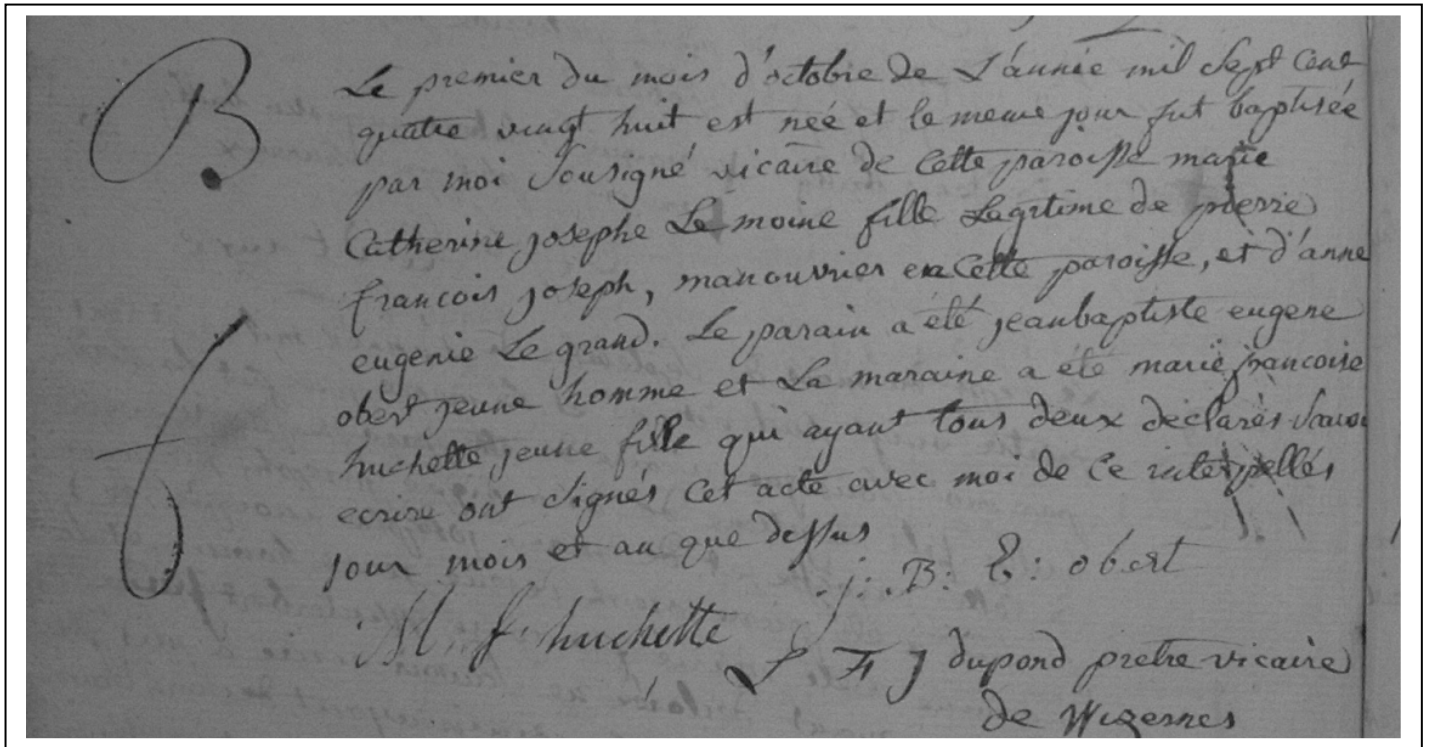 B
Le premier du mois d'octobre de L'année mil Sept Cent
quatre vingt huit est neé et le meme jour fut baptisée
par moi Sousigné vicaire de Cette paroisse marie
Catherine josephe Le moine fille Legitime de pierre
francois joseph, manouvrier en Cette paroisse, et d'anne
eugenie Le grand. Le parain a été jeanbaptiste eugene
obert jeune homme et La maraine a été marie francoise
huchette jeune fille qui ayant tous deux declarés Savoir
ecrire ont Signés Cet acte avec moi de Ce interpellés
jour mois et an que dessus
j: B: E: obert
M f huchette
L F J dupond pretre vicaire
de Wizernes